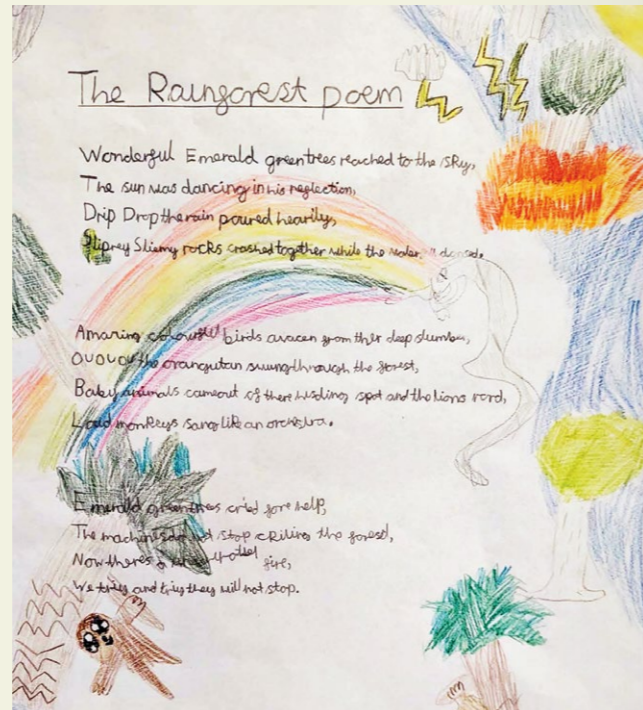 The Rainforest poem
Wonderful Emerald greentrees reached to the sky,
The sun was dancing in his reflection,
Drip Drop the rain poured heavily,
Sliprey Sliemy rocks crashed together while the water danced.
Amazing colourful birds avacen from ther deep slumber,
OUOUOU the orangutan swung through the forest,
Baby animals came out of there hiding spot and the lions rord,
Loud monkeys sang like an orchstra.
Emerald green trees cried fore help,
The machines not stop cziling the forest,
Now theres fire,
We triy and triy they will not stop.